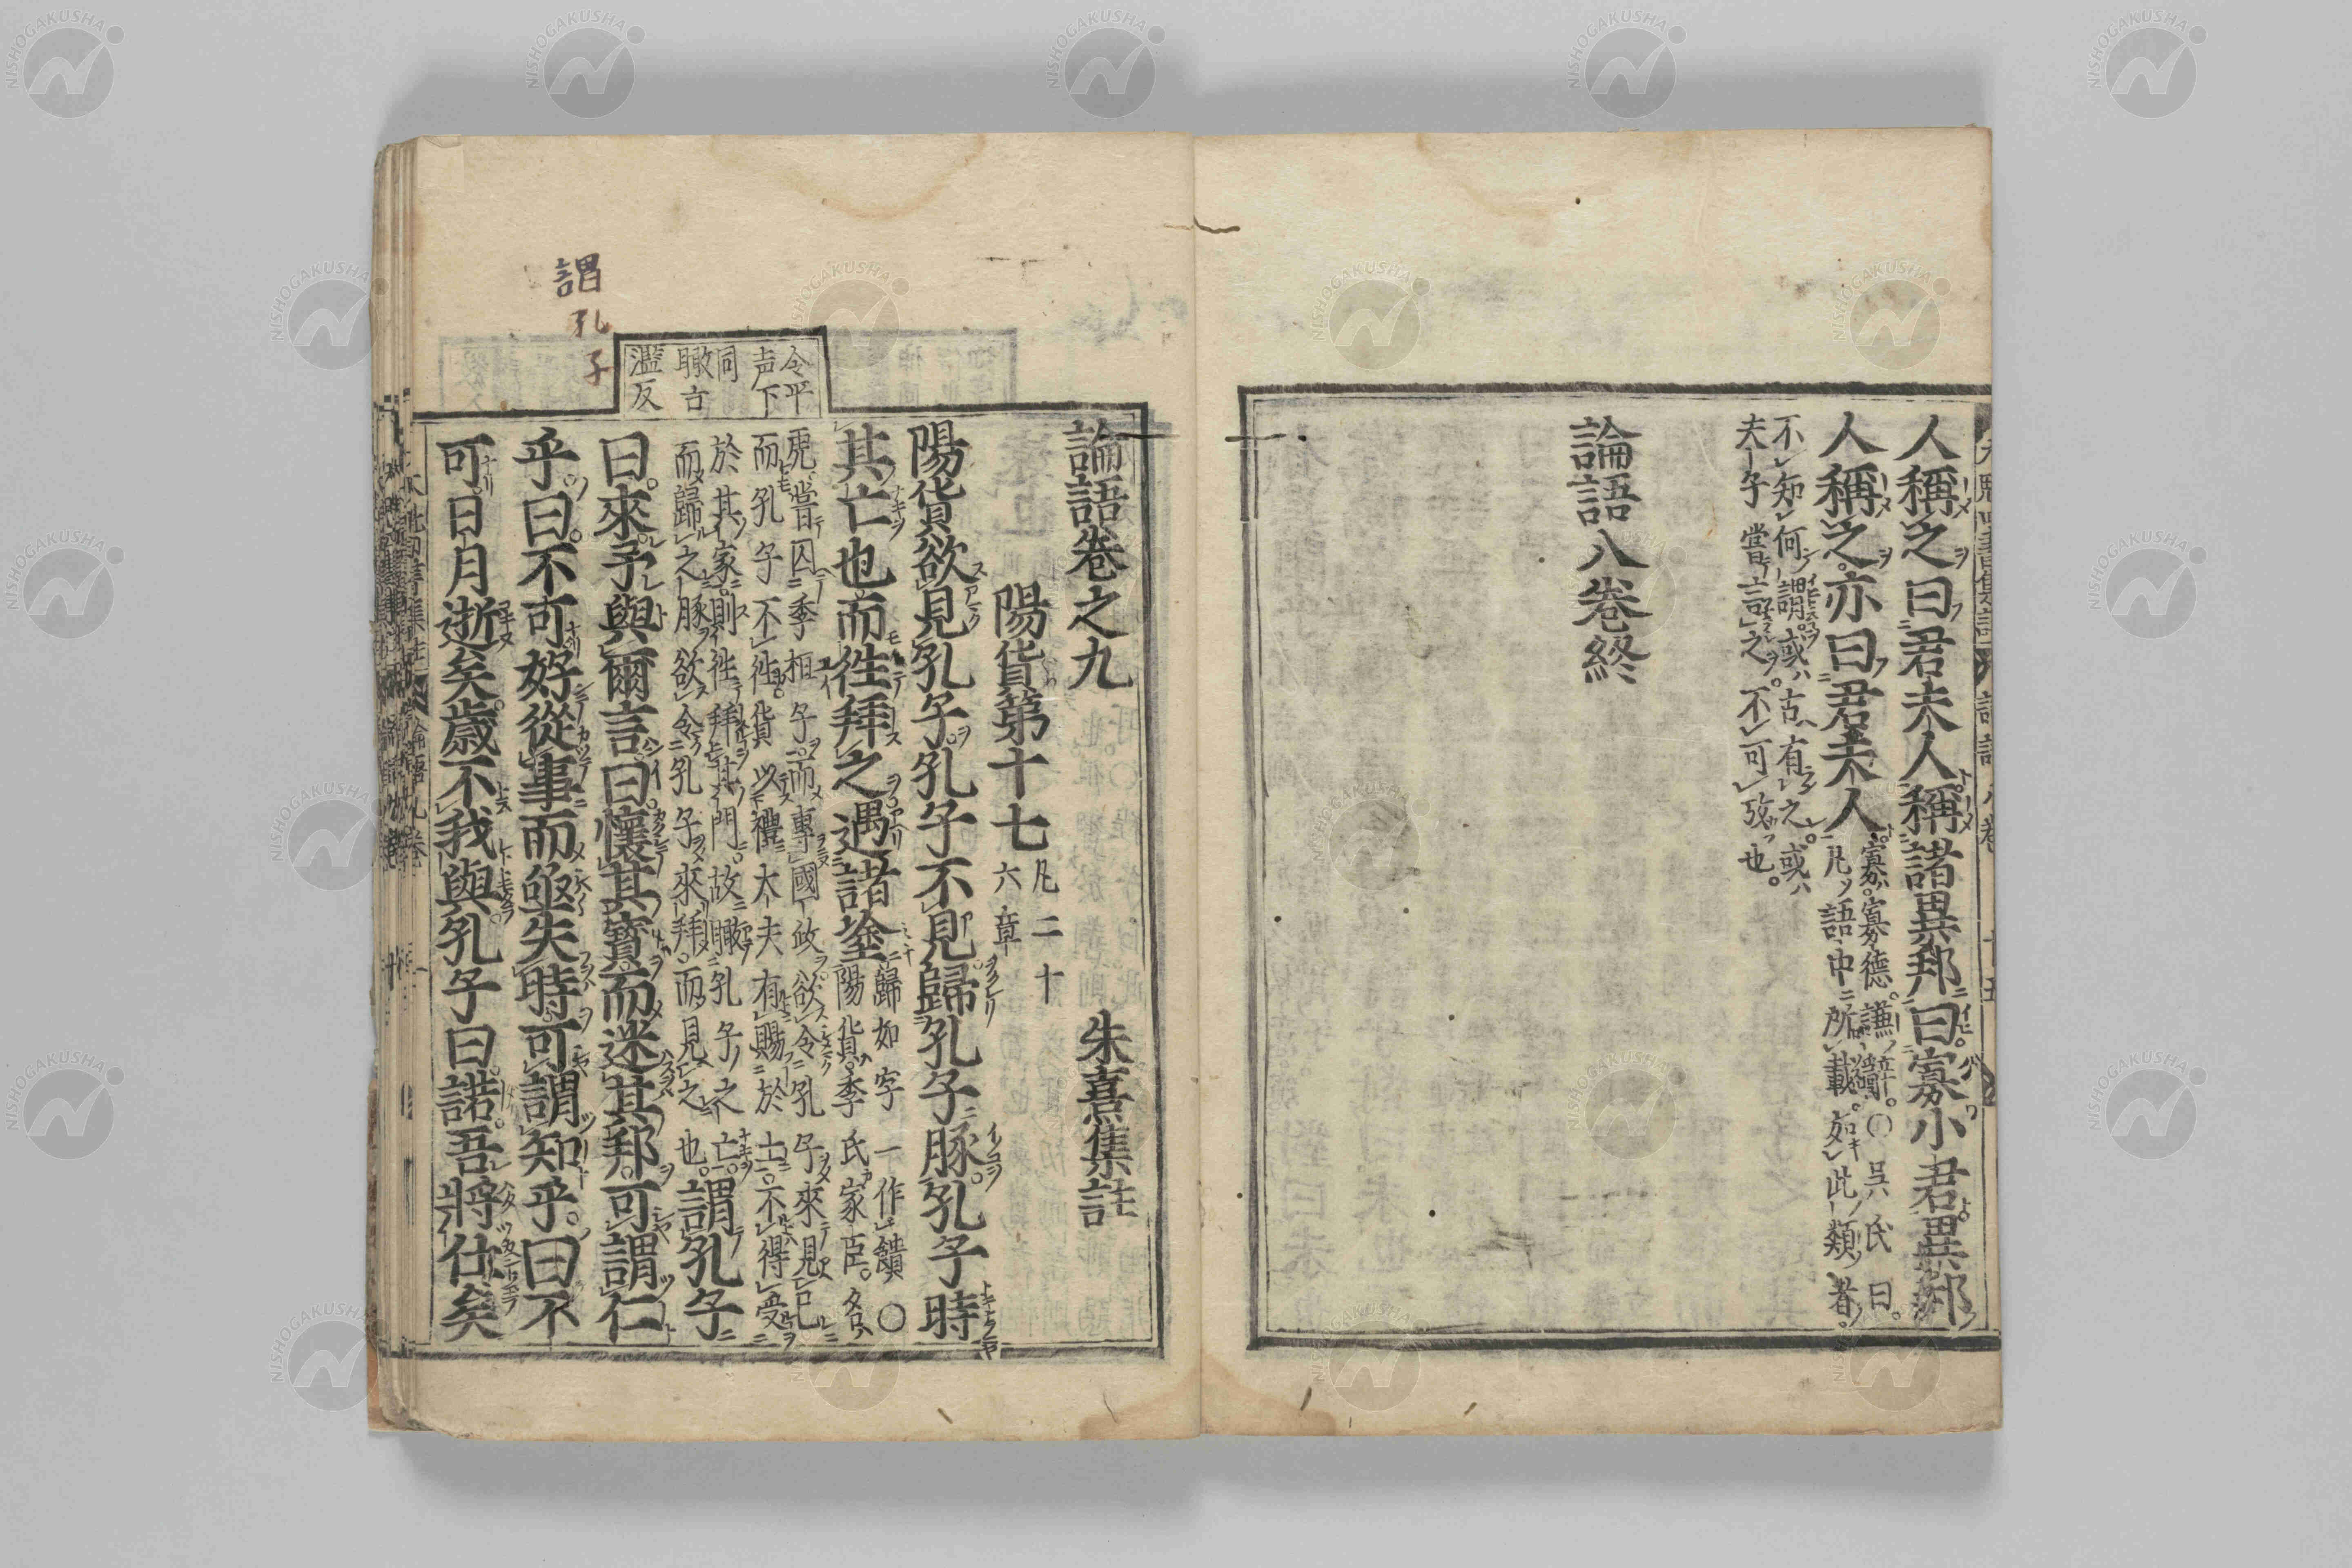 人稱之曰君夫人稱諸異邦曰寡小君異邦
人稱之亦曰君夫人
寡寡德謙辭○吳氏曰
凡語中所載如此類者
不知何謂或古有之或
夫子嘗言之不可攷也
論語八卷終
論語卷之九
朱熹集註
陽貨第十七
凡二十
六章
陽貨欲見孔子孔子不見歸孔子豚孔子時
其亡也而徃拜之遇諸塗
歸如字一作饋○
陽貨季氏家臣名
令平
声下
同
瞰古
濫反
虎嘗囚季桓子而專國政欲令孔子來見已
而孔子不徃貨以禮大夫有賜於士不得受
於其家則徃拜其門故瞰孔子之亡
而歸之豚欲令孔子來拜而見之也
謂孔子
曰來予與爾言曰懷其寶而迷其邦可謂仁
乎曰不可好從事而亟失時可謂知乎曰不
可日月逝矣歲不我與孔子曰諾吾將仕矣
謂
孔
子